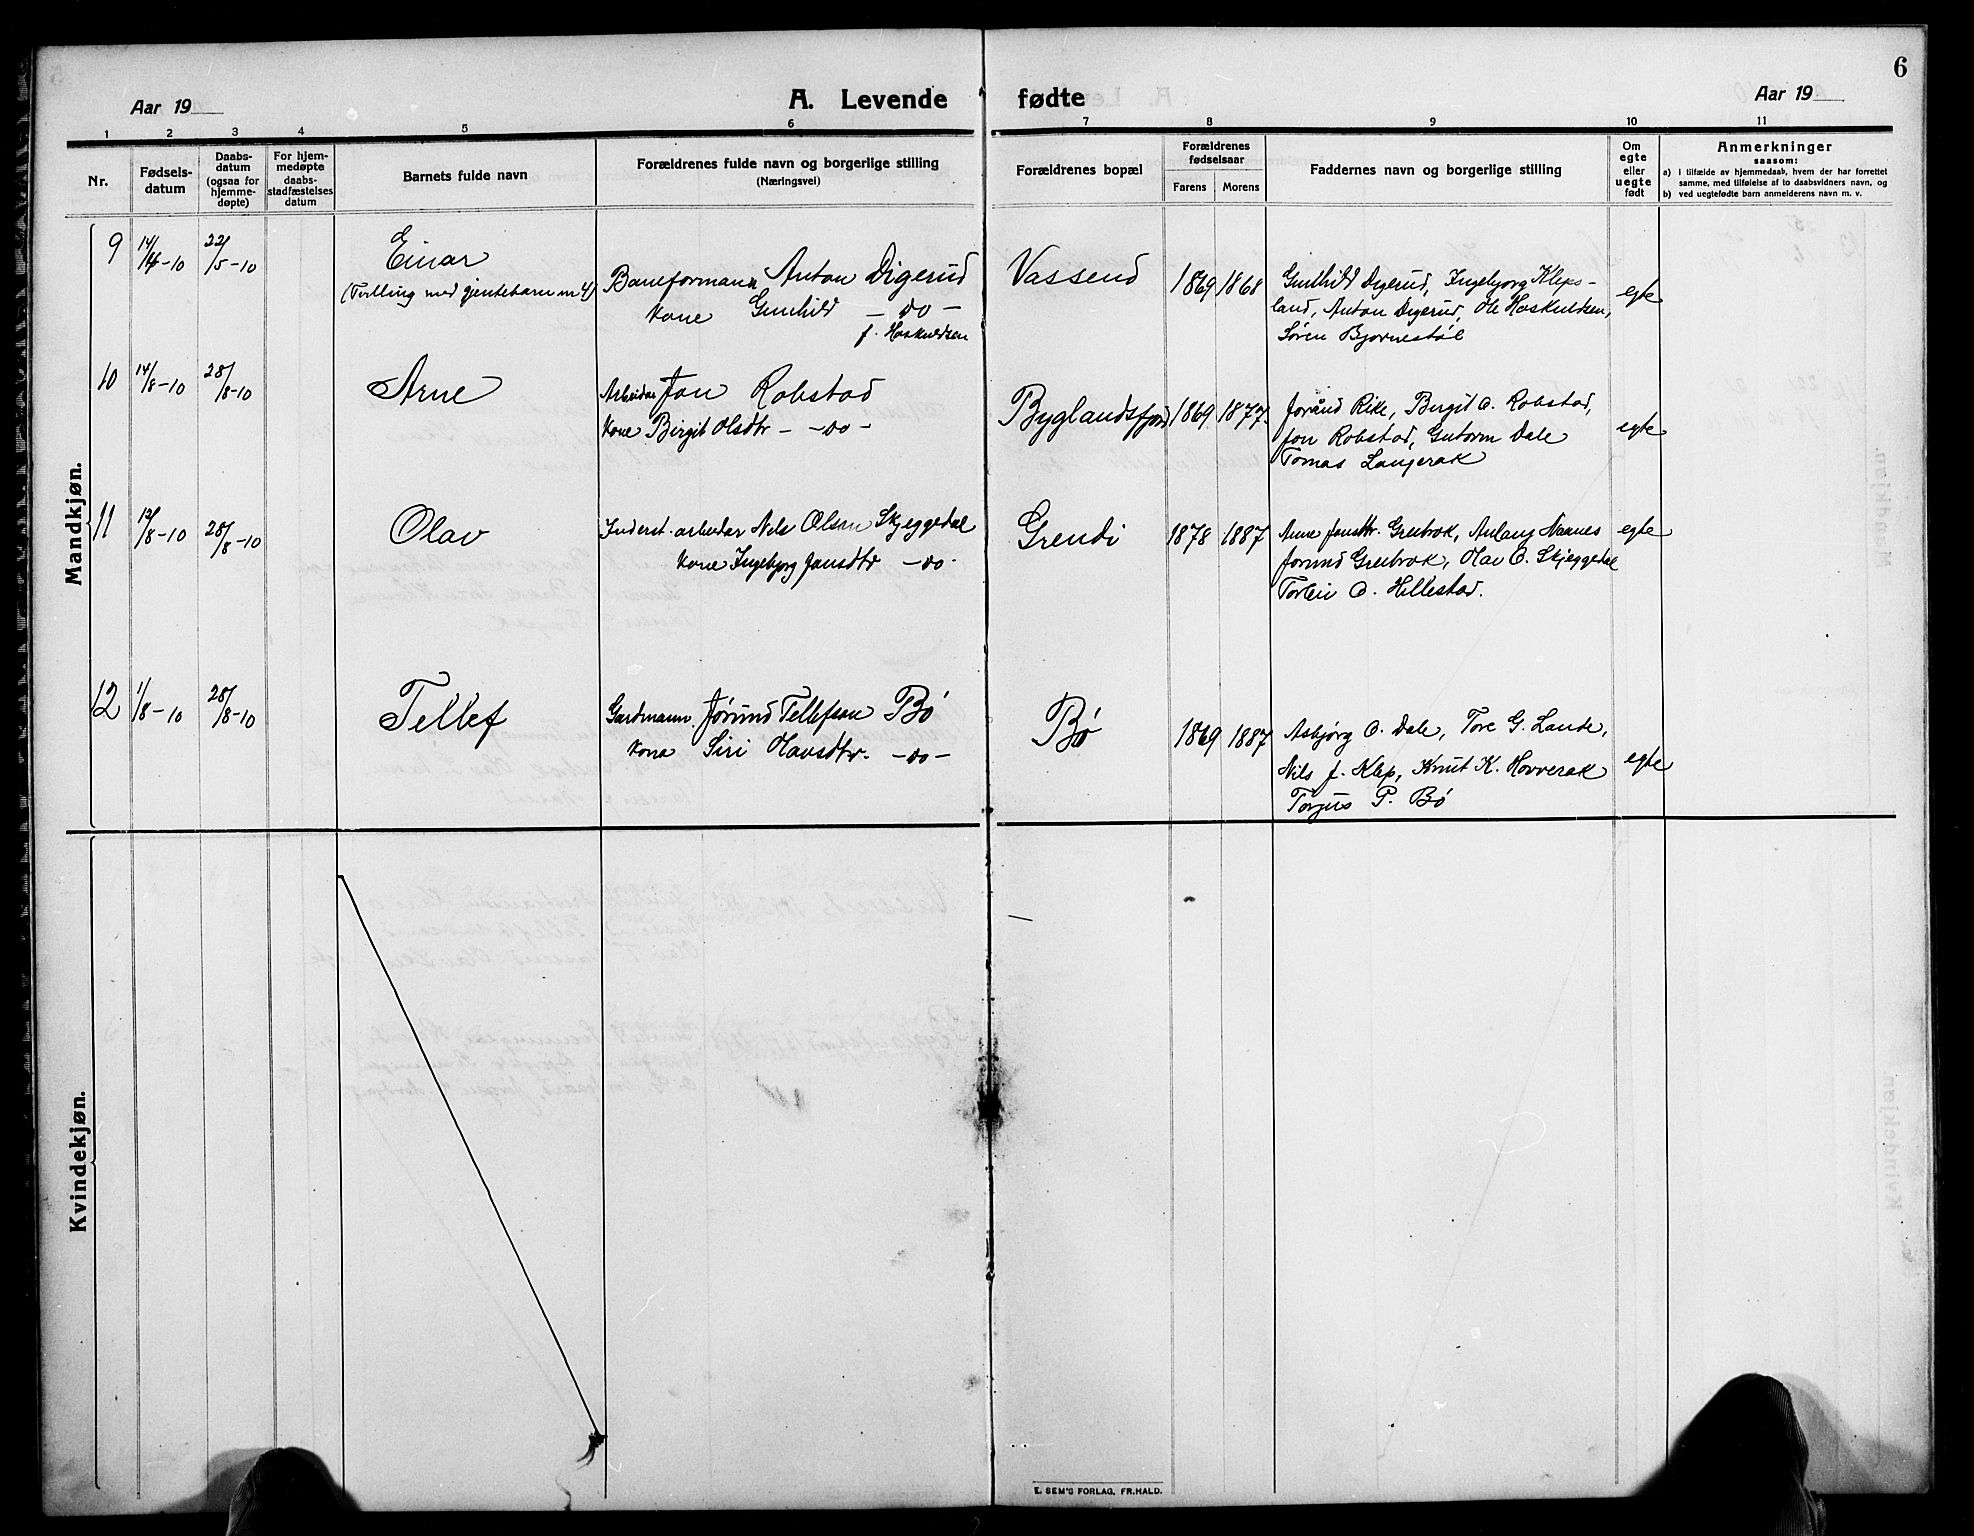 6
Aar 19
A. Levende fødte
Aar 19
1 2 3 4 5 6 7 8 9 10 11
Nr.
Fødsels-
datum
Daabs-
datum
(ogsaa for
hjemme-
døpte)
For hjem-
medøpte
daabs-
stadfæstelses
datum
Barnets fulde navn
Forældrenes fulde navn og borgerlige stilling
(Næringsvei)
Forældrenes bopæl
Forældrenes
fødselsaar
Farens Morens
Faddernes navn og borgerlige stilling
Om
egte
eller
uegte
født
Anmerkninger
saasom:
a) i tilfælde av hjemmedaab, hvem der har forrettet
samme, med tilføielse af to daabsvidners navn, og
b) ved uegtefødte barn anmelderens navn m. v.
Mandkjøn.
9 14/4-10 22/5-10
Einar
(Tvilling med gjentebarn nr 4)
Baneformann Anton Digerud
kone Gunhild -do-
f. Hoskuldsen
Vassend
1869 1868
Gunhild Digerud, Ingebjorg Kleps-
land, Anton Digerud, Ole Hoskuldsen,
Søren Bjornestøl
egte
10 14/8-10 28/8-10
Arne
Arbeidar Jon Robstad
kone Birgit Olsdtr - -do-
Byglandsfjord
1869 1877.
Jorånd Rike, Birgit O. Robstad,
Jon Robstad, Gutorm Dale
Tomas Langerak
egte
11 12/8-10 28/8-10
Olav
Inderst. arbeidar Nels Olsen Skjeggedal
kone Ingebjorg Jonsdtr -do-
Grendi
1878 1887
Anne Jonsdtr. Grenbrok, Aslaug Naanes
Jorund Grenbrok, Olav O. Skjeggedal
Torleiv O. Hillestad.
egte
12 1/8-10 28/8-10
Tellef
Gardmann. Jørund Tellefson Bø
kona Siri Olavsdtr. -do-
Bø
1869 1887
Asbjørg O. Dale, Tore G. Lande,
Nils J. Klep, Knut K. Hovverak
Torjus P. Bø
egte
Kvindekjøn.
E. SEM'S FORLAG, FR.HALD.